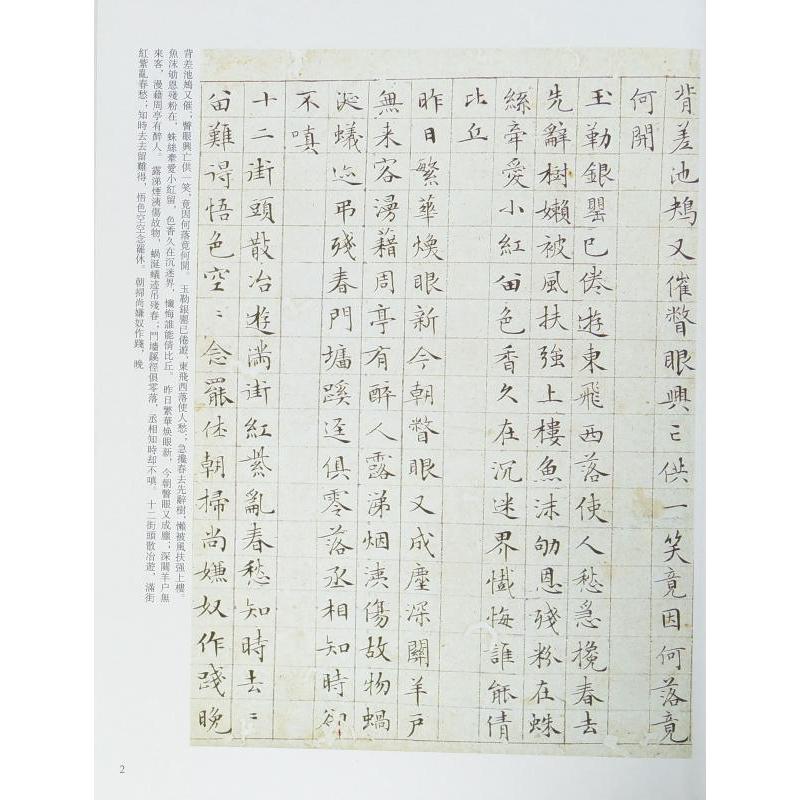 背差池鳷又催瞥眼興亡供一笑竟因何落竟
何開
玉勒銀罌已倦遊東飛西落使人愁急攙春去
先辭樹嬾被風扶強上樓魚沫劬恩殘粉在蛛
絲牽愛小紅留色香久在沉迷界懺悔誰能倩
比丘
昨日繁華煥眼新今朝瞥眼又成塵深關羊戶
無来客漫藉周亭有醉人露涕烟洟傷故物蝸
涎蟻迹吊殘春門墻蹊逕俱零落丞相知時卻
不嗔
十二街頭散冶遊滿街紅紫亂春愁知時去〻
留難得悟色空〻念罷休朝掃尚嫌奴作踐晚
背差池鳷又催；瞥眼興亡供一笑，竟因何落竟何開。 玉勒銀罌已倦遊，東飛西落使人愁；急攙春去先辭樹，懶被風扶強上樓。
魚沫劬恩殘粉在，蛛絲牽愛小紅留，色香久在沉迷界，懺悔誰能倩比丘。 昨日繁華煥眼新，今朝瞥眼又成塵；深關羊戶無
來客，漫藉周亭有醉人。 露涕煙洟傷故物，蝸涎蟻迹吊殘春；門墻蹊徑俱零落，丞相知時却不嗔。 十二街頭散冶遊，滿街
紅紫亂春愁；知時去去留難得，悟色空空念罷休。 朝掃尚嫌奴作踐，晚
2